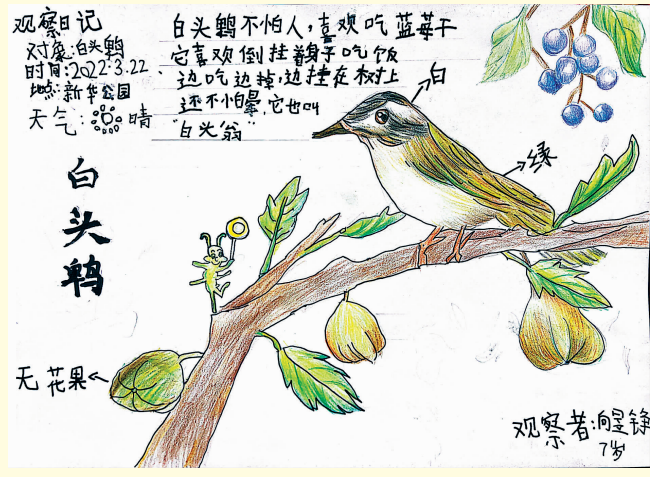 观察日记
对象:白头鹎
时间:2022.3.22.
地点:新华公园
天气: 晴
白头鹎不怕人,喜欢吃蓝莓干
它喜欢倒挂着身子吃饭
边吃边掉,边挂在树上
还不怕晕,它也叫
"白头翁"
白
绿
白头鹎
无花果
观察者:
7岁